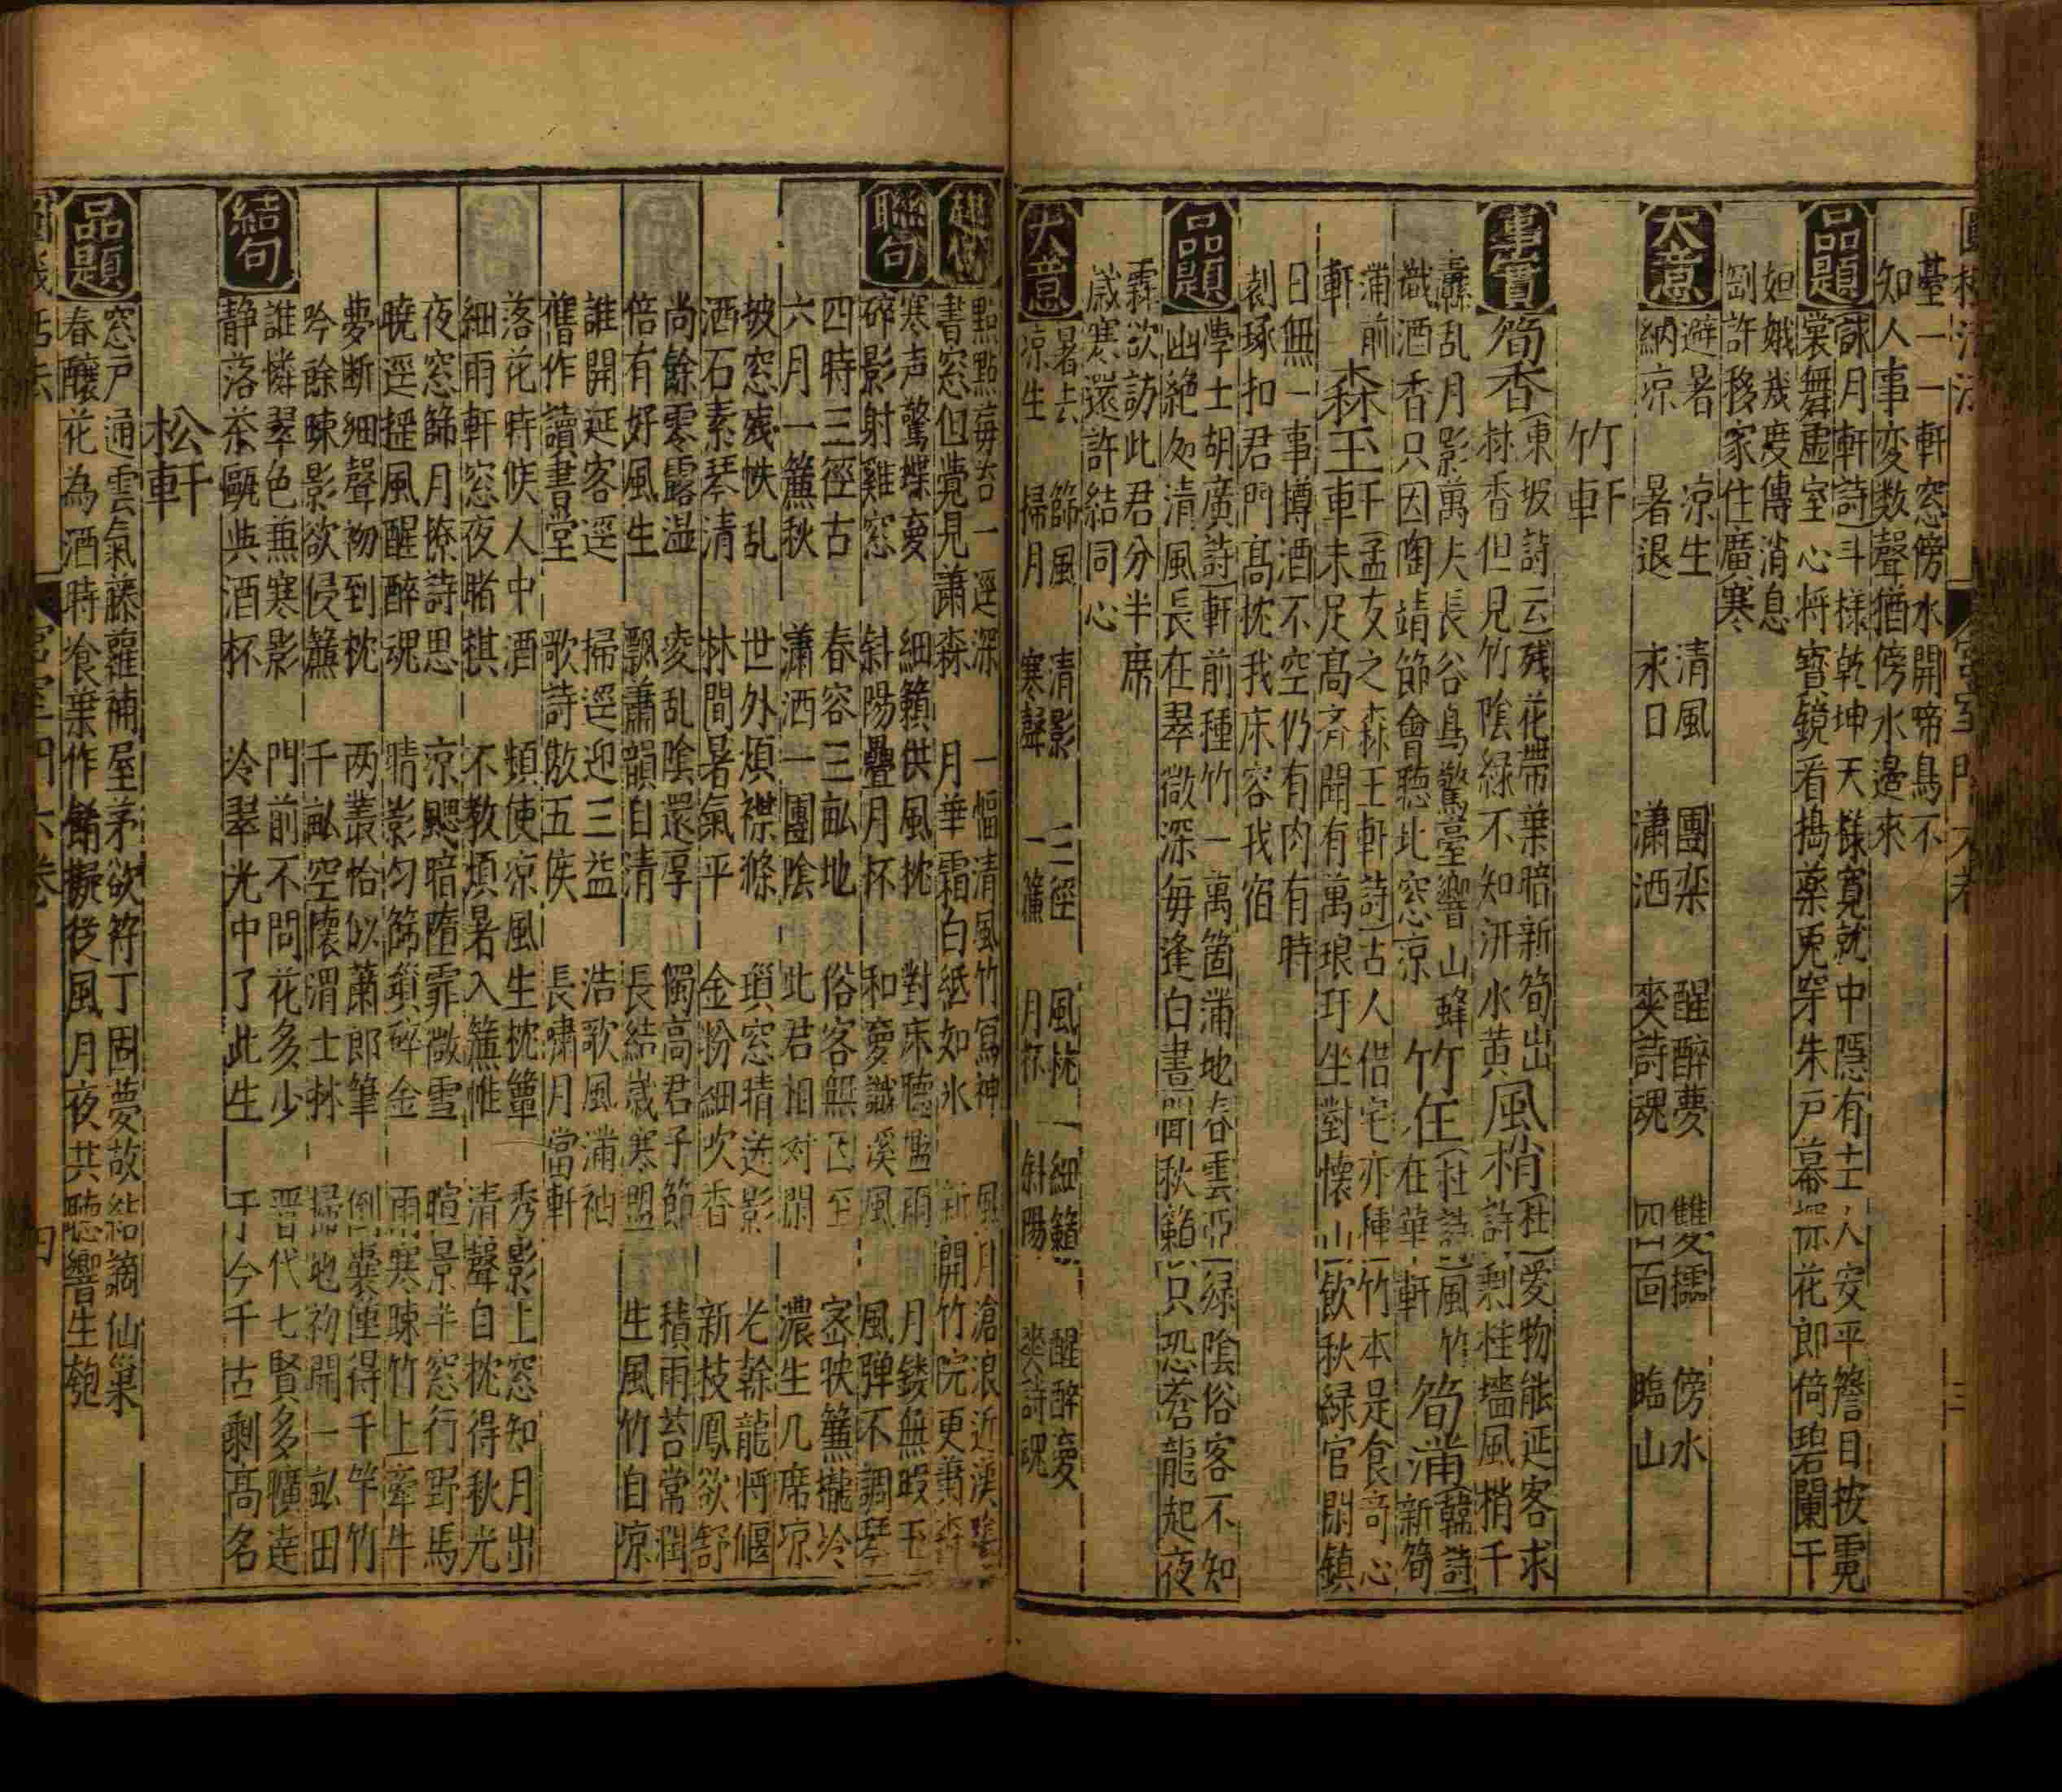 臺一一軒窓傍水開啼鳥不
知人事変数聲猶傍水邉來
品題
詠月軒詩 斗様乾坤天様寛就中隠有士人安平簷目按霓
裳舞虚室心将寳鏡看搗藥兎穿朱戸幕 花郎倚碧闌干
妲娥幾度傳消息
劄許移家住廣寒
大意
避暑 凉生 清風 團栾 醒醉夢 雙檽 傍水
納凉 暑退 永日 瀟洒 爽詩魂 四面 臨山
竹軒
事實
筍香
東坡詩云 残花帶葉暗新筍出
林香但見竹陰緑不知汧水黄
風梢
杜詩 愛物能延客求
剩桂墻風梢千
纛乱月影萬夫長谷鳥驚臺響山蜂
識酒香只因陶靖節會聽北窓凉
竹在
杜詩 風竹
在華軒
筍滿
韓詩
新筍
滿前
軒
森玉
孟友之森玉軒詩 古人借宅亦種竹本是食竒心
車未足髙斉開有萬琅玕坐對懐山飲秋緑官閑鎮
日無一事樽酒不空仍有肉有時
剥琢扣君門髙枕我床容我宿
品題
學士胡廣詩 軒前種竹一萬箇滿地春雲亞緑陰俗客不知
幽絶処清風長在翠微深毎逢白晝聞秋籟只恐蒼龍起夜
霖欲訪此君分半席
歳寒還許結同心
大意
暑去 篩風 清影 三徑 風枕 細籟 醒醉夢
凉生 掃月 寒聲 一簾 月杯 斜陽 爽詩魂
起句
點點毎苔一逕深 一幅清風竹寫神 風月滄浪近溪
書窓但覺見蕭森 月華霜白紙如氷 新開竹院更蕭森
聯句
寒声驚蝶夢 細籟供風枕 對床聴 雨 月鏤無暇玉
碎影射雞窓 斜陽疊月杯 和夢識溪風 風弾不調琴
四時三徑古 春容三畝地 俗客無因至 宻映簾櫳冷
六月一簾秋 瀟洒一團陰 此君相对閑 濃生几席凉
坡窓残帙乱 世外煩襟滌 瑣窓晴送影 老幹龍将偃
洒石素琴清 林間暑氣平 金粉細吹香 新枝鳳欲舒
尚餘零露湿 凌乱陰還享 獨高君子節 積雨苔常潤
倍有好風生 飄蕭韻自清 長結歳寒盟 生風竹自凉
誰開延客逕 掃逕迎三益 浩歌風滿袖
舊作讀書堂 歌詩傲五侯 長嘯月當軒
落花時候人中酒 頻使凉風生枕簟 秀影上窓知月出
細雨軒窓夜賭棋 不教煩暑入簾帷 清聲自枕得秋光
夜窓篩月撩詩思 凉颸暗墮霏微雪 暄景半窓行野馬
暁逕揺風醒醉魂 晴影匀篩鎖碎金 雨寒疎竹上牽牛
夢断細聲初到枕 两叢恰似蕭郎筆 倒嚢僅得千竿竹
吟餘疎影欲侵簾 千畝空懐渭士林 掃地初開一畝田
結句
誰憐翠色兼寒影 門前不問花多少 晋代七賢多曠達
静落茶甌與酒杯 冷翠光中了此生 于今千古剩髙名
松軒
品題
窓戸通雲氣藤蘿補屋茅欲符丁固夢故結謫仙巢
春釀花為酒時飧葉作餚擬從風月夜共聴響生匏